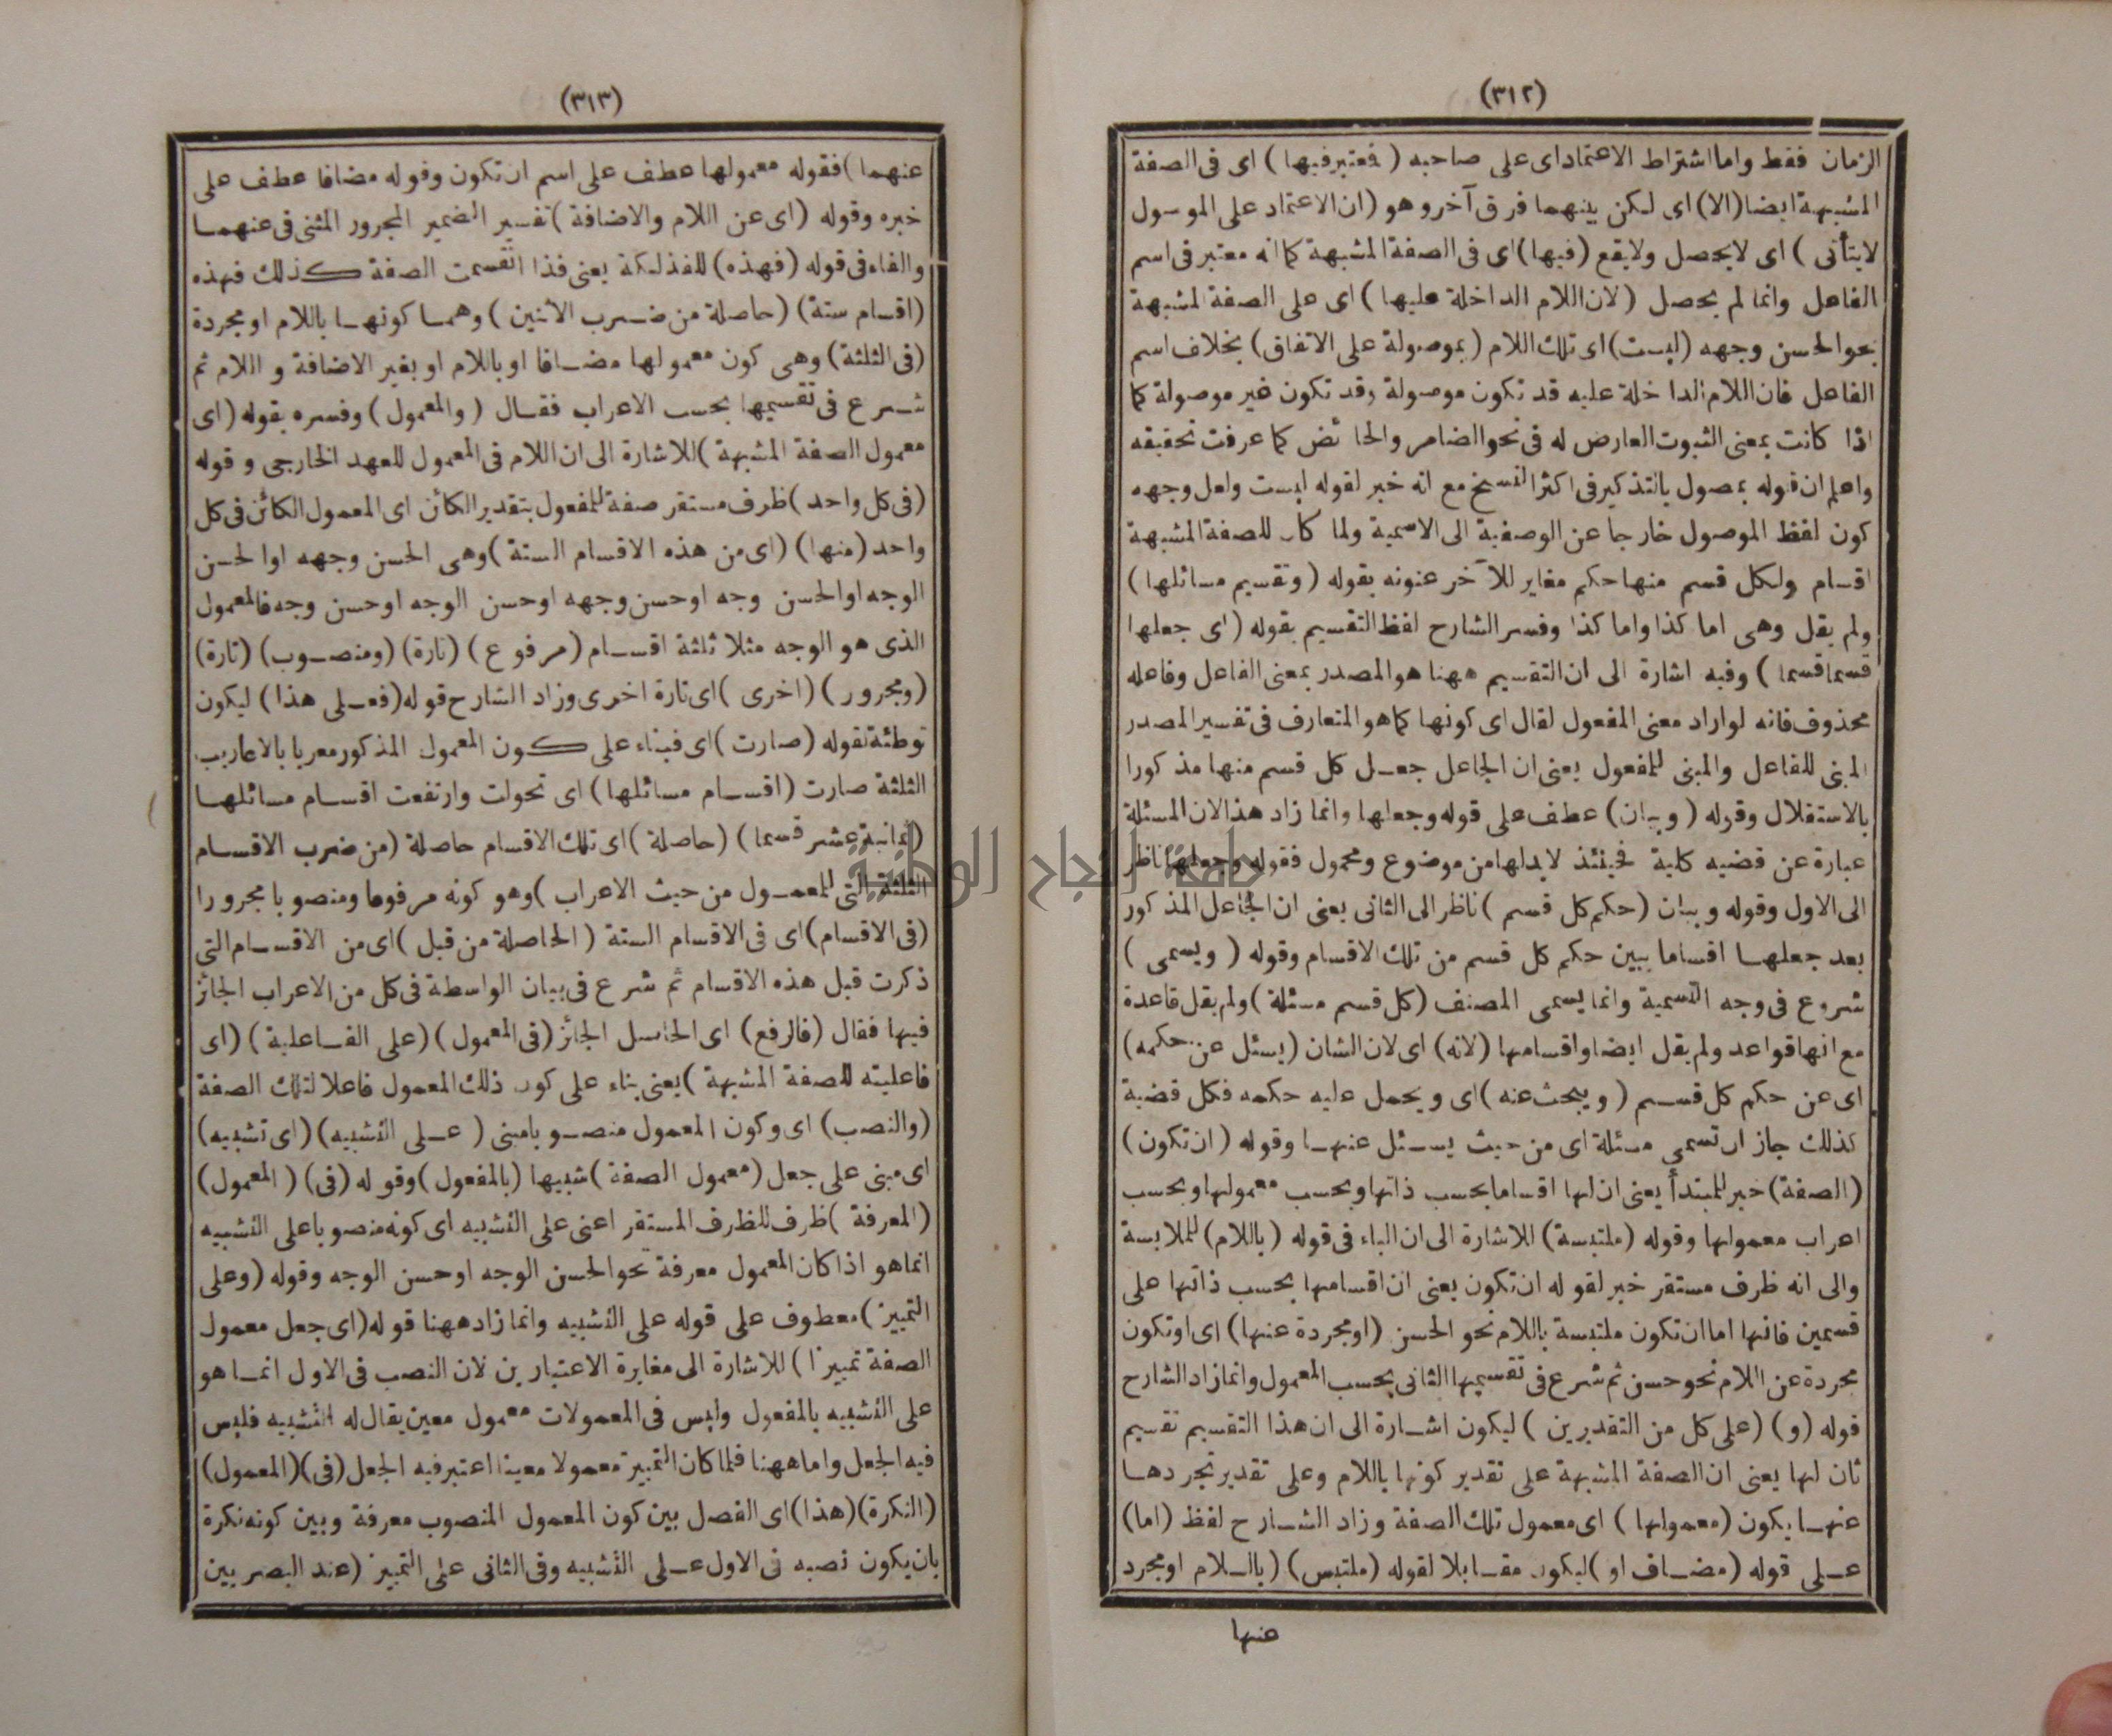 (٣١٢)
الزمان فقط واما اشتراط الاعتماد اى على صاحبه ( فعتبر فيها ) اى فى الصفة
المشبهة ايضا (الا) اى لكن بينهما فرق آخر وهو (ان الاعتماد على الموصول
لا يتأتى ) اى لا يحصل ولا يقع (فيها) اى فى الصفة المشبهة كما انه معتبر فى اسم
الفاعل وانما لم يحصل (لان اللام الداخلة عليها ) اى على الصفة المشبهة
نحو الحسن وجهه (ليست) اى تلك اللام (بموصولة على الاتفاق) بخلاف اسم
الفاعل فان اللام الداخلة عليه قد تكون موصولة وقد تكون غير موصولة كما
اذا كانت بمعنى الثبوت العارض له فى نحو الضامر والحائض كما عرفت تحقيقه
واعلم ان قوله بمصول بالتذكير فى اكثر النسخ مع انه خبر لقوله ليست ولعل وجهه
كون لفظ الموصول خارجا عن الوصفية الى الاسمية ولما كان للصفة المشبهة
اقسام ولكل قسم منها حكم مغاير للآخر عنونه بقوله ( وتقسيم مسائلها )
ولم يقل وهى اما كذا واما كذا وفسر الشارح لفظ التقسيم بقوله (اى جعلها
قسما قسما ) وفيه اشارة الى ان التقسيم ههنا هو المصدر بمعنى الفاعل وفاعله
محذوف فانه لو اراد معنى المفعول لقال اى كونها كما هو المتعارف فى تفسير المصدر
المبنى للفاعل والمبنى للمفعول يعنى ان الجاعل جعل كل قسم منها مذكورا
بالاستقلال وقوله ( وبيان) عطف على قوله وجعلها وانما زاد هذا لان المسئلة
عبارة عن قضيه كلية فحينئذ لا بد لها من موضوع ومحمول فقوله وجعلها ناظر
الى الاول وقوله وبيان (حكم كل قسم ) ناظر الى الثانى يعنى ان الجاعل المذكور
بعد جعلها اقساما يبين حكم كل قسم من تلك الاقسام وقوله ( ويسمى )
شروع فى وجه التسمية وانما يسمى المصنف (كل قسم مسئلة ) ولم يقل قاعدة
مع انها قواعد ولم يقل ايضا واقسامها (لانه) اى لان الشان (يسئل عن حكمه)
اى عن حكم كل قسم ( ويبحث عنه ) اى ويحمل عليه حكمه فكل قضية
كذلك جاز ان تسمى مسئلة اى من حيث يسئل عنها وقوله ( ان تكون )
(الصفة) خبر للمبتدأ يعنى ان لها اقساما بحسب ذاتها وبحسب معمولها وبحسب
اعراب معمولها وقوله (ملتبسة) للاشارة الى ان الباء فى قوله (باللام) للملابسة
والى انه ظرف مستقر خبر لقوله ان تكون يعنى ان اقسامها بحسب ذاتها على
قسمين فانها اما ان تكون ملتبسة باللام نحو الحسن (او مجردة عنها) اى او تكون
مجردة عن اللام نحو حسن ثم شرع فى تقسيمها الثانى بحسب المعمول وانما زاد الشارح
قوله (و) (على كل من التقديرين ) ليكون اشارة الى ان هذا التقسيم تقسيم
ثان لها يعنى ان الصفة المشبهة على تقدير كونها باللام وعلى تقدير تجردها
عنها يكون (معمولها ) اى معمول تلك الصفة وزاد الشارح لفظ (اما)
على قوله (مضاف او ) ليكون مقابلا لقوله (ملتبس) (باللام او مجرد
عنها
(٣١٣)
عنهما ) فقوله معمولها عطف على اسم ان تكون وقوله مضافا عطف على
خبره وقوله (اى عن اللام والاضافة ) تفسير الضمير المجرور المثنى فى عنهما
والفاء فى قوله (فهذه) للفذلكة يعنى فذا انقسمت الصفة كذلك فهذه
(اقسام ستة) (حاصلة من ضرب الاثنين ) وهما كونها باللام او مجردة
(فى الثلثة) وهى كون معمولها مضافا او باللام او بغير الاضافة و اللام ثم
شرع فى تقسيمها بحسب الاعراب فقال (والمعمول ) وفسره بقوله (اى
معمول الصفة المشبهة ) للاشارة الى ان اللام فى المعمول للعهد الخارجى وقوله
(فى كل واحد ) ظرف مستقر صفة للمفعول بتقدير الكائن اى المعمول الكائن فى كل
واحد (منها) (اى من هذه الاقسام الستة ) وهى الحسن وجهه او الحسن
الوجه او الحسن وجه او حسن وجهه او حسن الوجه او حسن وجه فالمعمول
الذى هو الوجه مثلا ثلثة اقسام (مرفوع ) (تارة) (ومنصوب) (تارة)
(ومجرور ) (اخرى ) اى تارة اخرى وزاد الشارح قوله (فعلى هذا ) ليكون
توطئة لقوله (صارت ) اى فبناء على كون المعمول المذكور معربا بالاعاريب
الثلثة صارت (اقسام مسائلها ) اى تحولت وارتفعت اقسام مسائلها
(ثمانية عشر قسما ) (حاصلة ) اى تلك الاقسام حاصلة (من ضرب الاقسام
الثلثة التى للمعمول من حيث الاعراب ) وهو كونه مرفوعا ومنصوبا مجرورا
(فى الاقسام) اى فى الاقسام الستة (الحاصلة من قبل ) اى من الاقسام التى
ذكرت قبل هذه الاقسام ثم شرع فى بيان الواسطة فى كل من الاعراب الجائز
فيها فقال (فالرفع) اى الحاصل الجائز (فى المعمول ) (على الفاعلية ) (اى
فاعليته للصفة المشبهة ) يعنى بناء على كون ذلك المعمول فاعلا لتلك الصفة
(والنصب) اى وكون المعمول منصوبا مبنى (على التشبيه) (اى تشبيه)
اى مبنى على جعل (معمول الصفة ) شبيها (بالمفعول ) وقوله (فى) (المعمول)
(المعرفة ) ظرف للظرف المستقر اعنى على التشبيه اى كونه منصوبا على التشبيه
انما هو اذا كان المعمول معرفة نحو الحسن الوجه او حسن الوجه وقوله (وعلى
التمييز ) معطوف على قوله على التشبيه وانما زاد ههنا قوله (اى جعل معمول
الصفة تمييزا ) للاشارة الى مغايرة الاعتبارين لان النصب فى الاول انما هو
على التشبيه بالمفعول وليس فى المعمولات معمول معين يقال له التشبيه فليس
فيه الجعل واما ههنا فلما كان التمييز معمولا معينا اعتبر فيه الجعل (فى) (المعمول)
(النكرة) (هذا) اى الفصل بين كون المعمول المنصوب معرفة وبين كونه نكرة
بان يكون نصبه فى الاول على التشبيه وفى الثانى على التمييز (عند البصريين
جامعة النجاح الوطنية